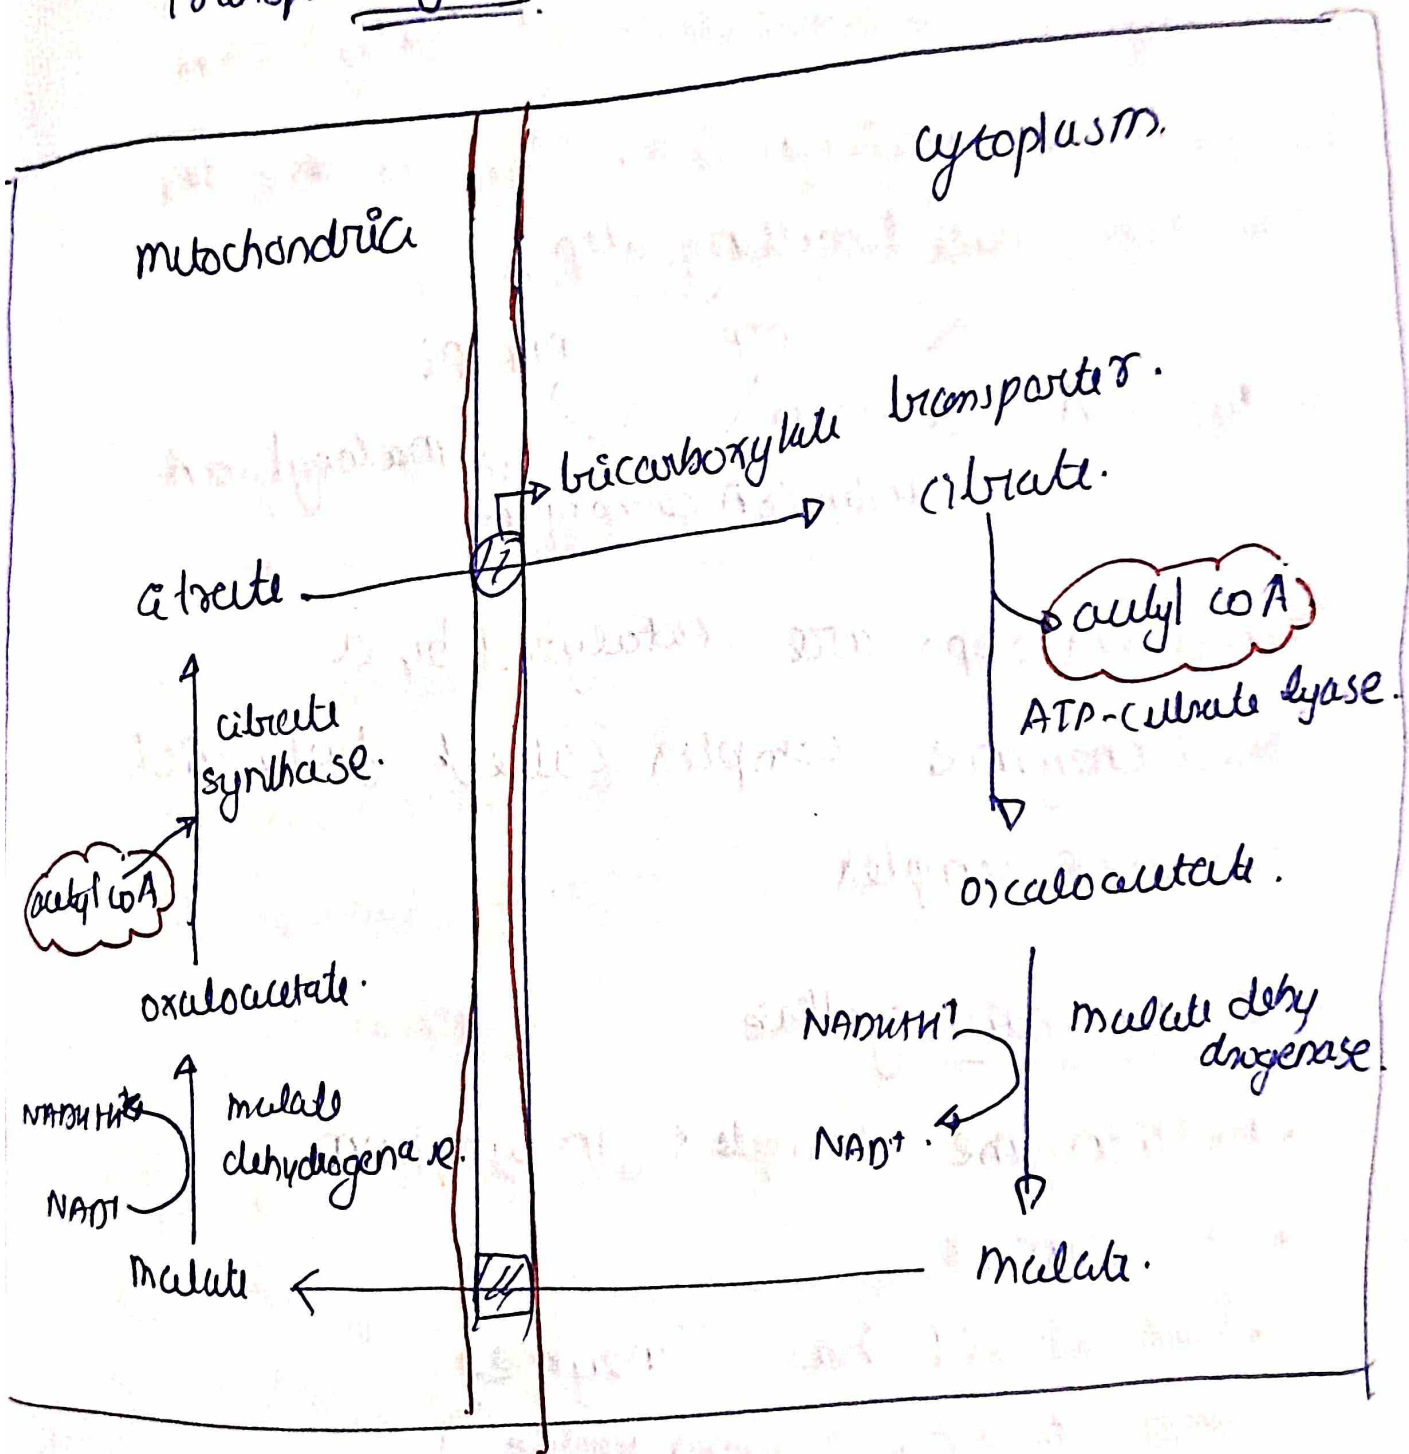 cytoplasm.
mitochondria
tricarboxylate transporter.
citrate.
citrate
acetyl coA
ATP-citrate lyase.
citrate
synthase.
acetyl coA
oxaloacetate.
oxaloacetate.
NADH+H+
malate dehy
drogenase.
NADH+H+
malate
dehydrogenase.
NAD+.
NAD+
malate
malate.